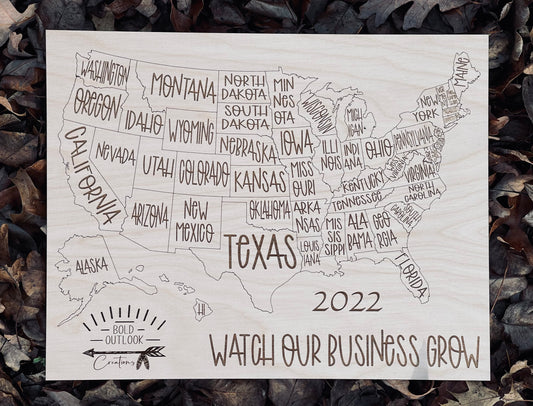 WASHINGTON
OREGON
CALIFORNIA
NEVADA
IDAHO
MONTANA
WYOMING
UTAH
COLORADO
ARIZONA
NEW
MEXICO
NORTH
DAKOTA
SOUTH
DAKOTA
NEBRASKA
KANSAS
OKLAHOMA
TEXAS
MIN
NES
OTA
IOWA
MISS
OURI
ARKA
NSAS
LOUIS
IANA
WISCONSIN
ILLI
NOIS
MICH
IGAN
INDI
ANA
OHIO
KENTUCKY
TENNESSEE
MIS
SIS
SIPPI
ALA
BAMA
GEO
RGIA
FLORIDA
SOUTH
CAROLINA
NORTH
CAROLINA
VIRGINIA
PENNSYLVANIA
NEW
YORK
MAINE
ALASKA
HI
BOLD
OUTLOOK
Creations
2022
WATCH OUR BUSINESS GROW